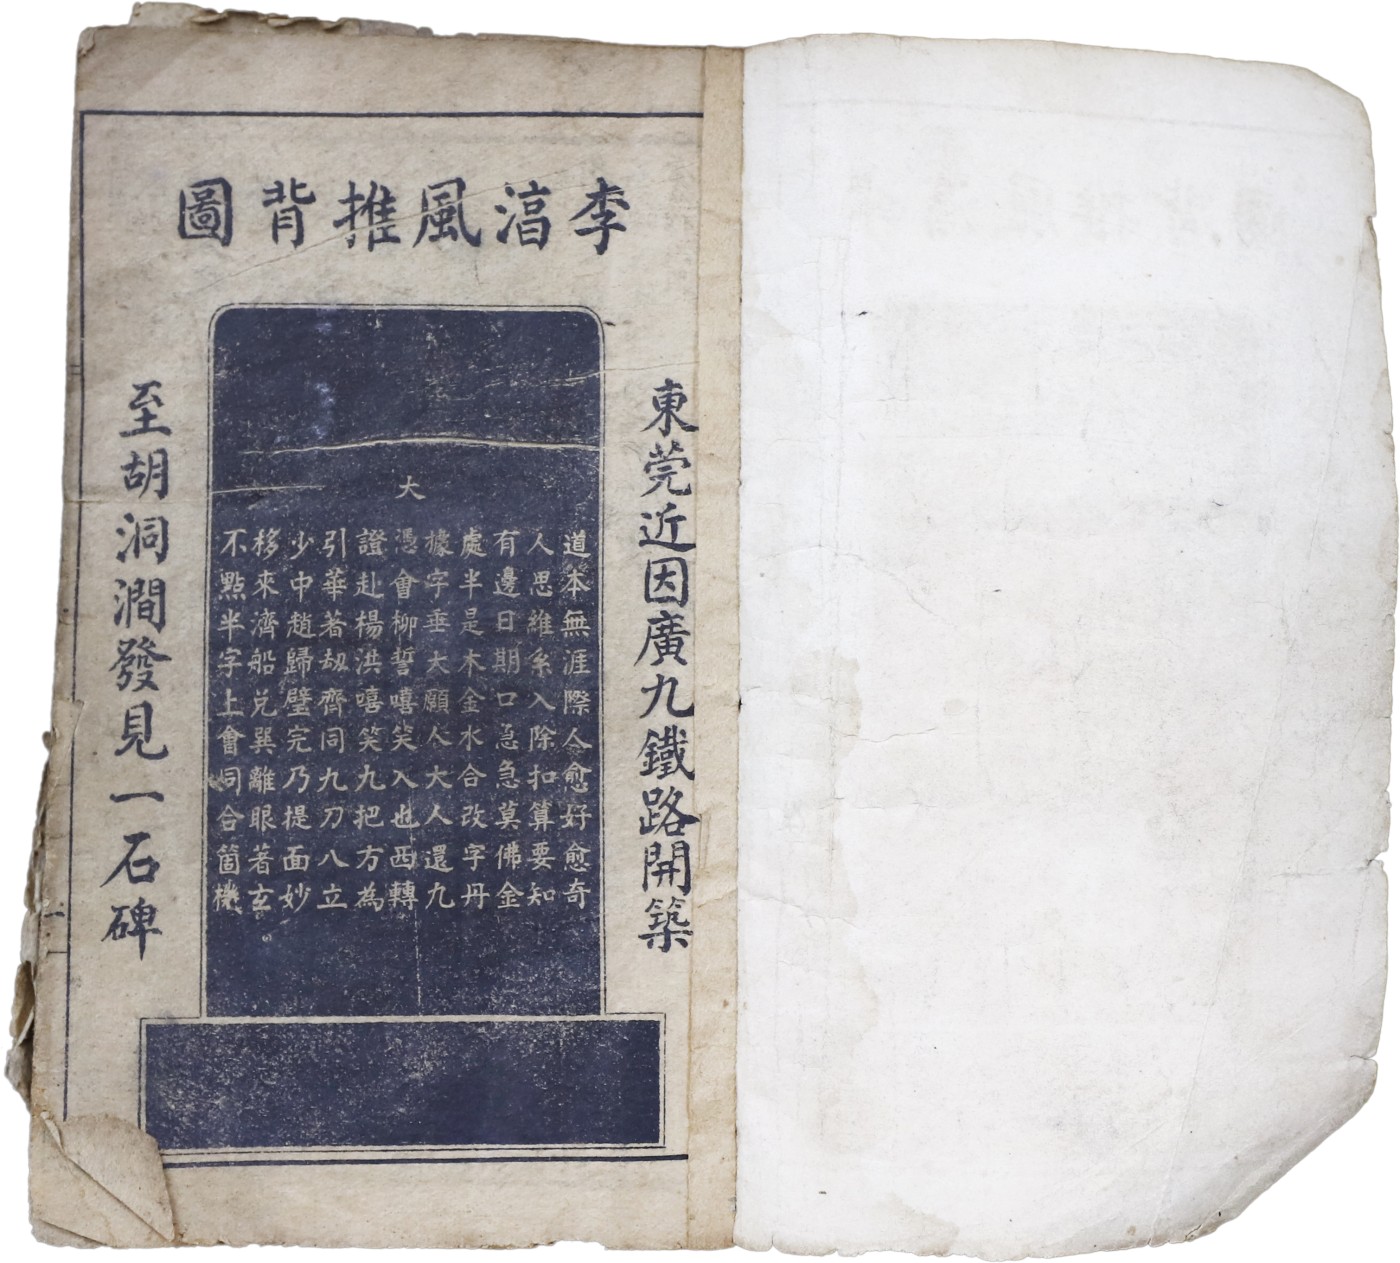 李湻風推背圖
東莞近因廣九鐵路開築
大
道本無涯際仒愈好愈奇
人思維系入除扣算要知
有邊日期口急急莫佛金
處半是木金水合改字丹
據字垂大願仌大人還九
憑會柳誓嘻笑入也西轉
證赴楊洪嘻笑九把方為
引華著劫齊同九刀八立
少中趙歸璧完乃提面妙
移來濟船兌巽離眼著玄
不點半字上會同合箇機
至胡洞澗發見一石碑